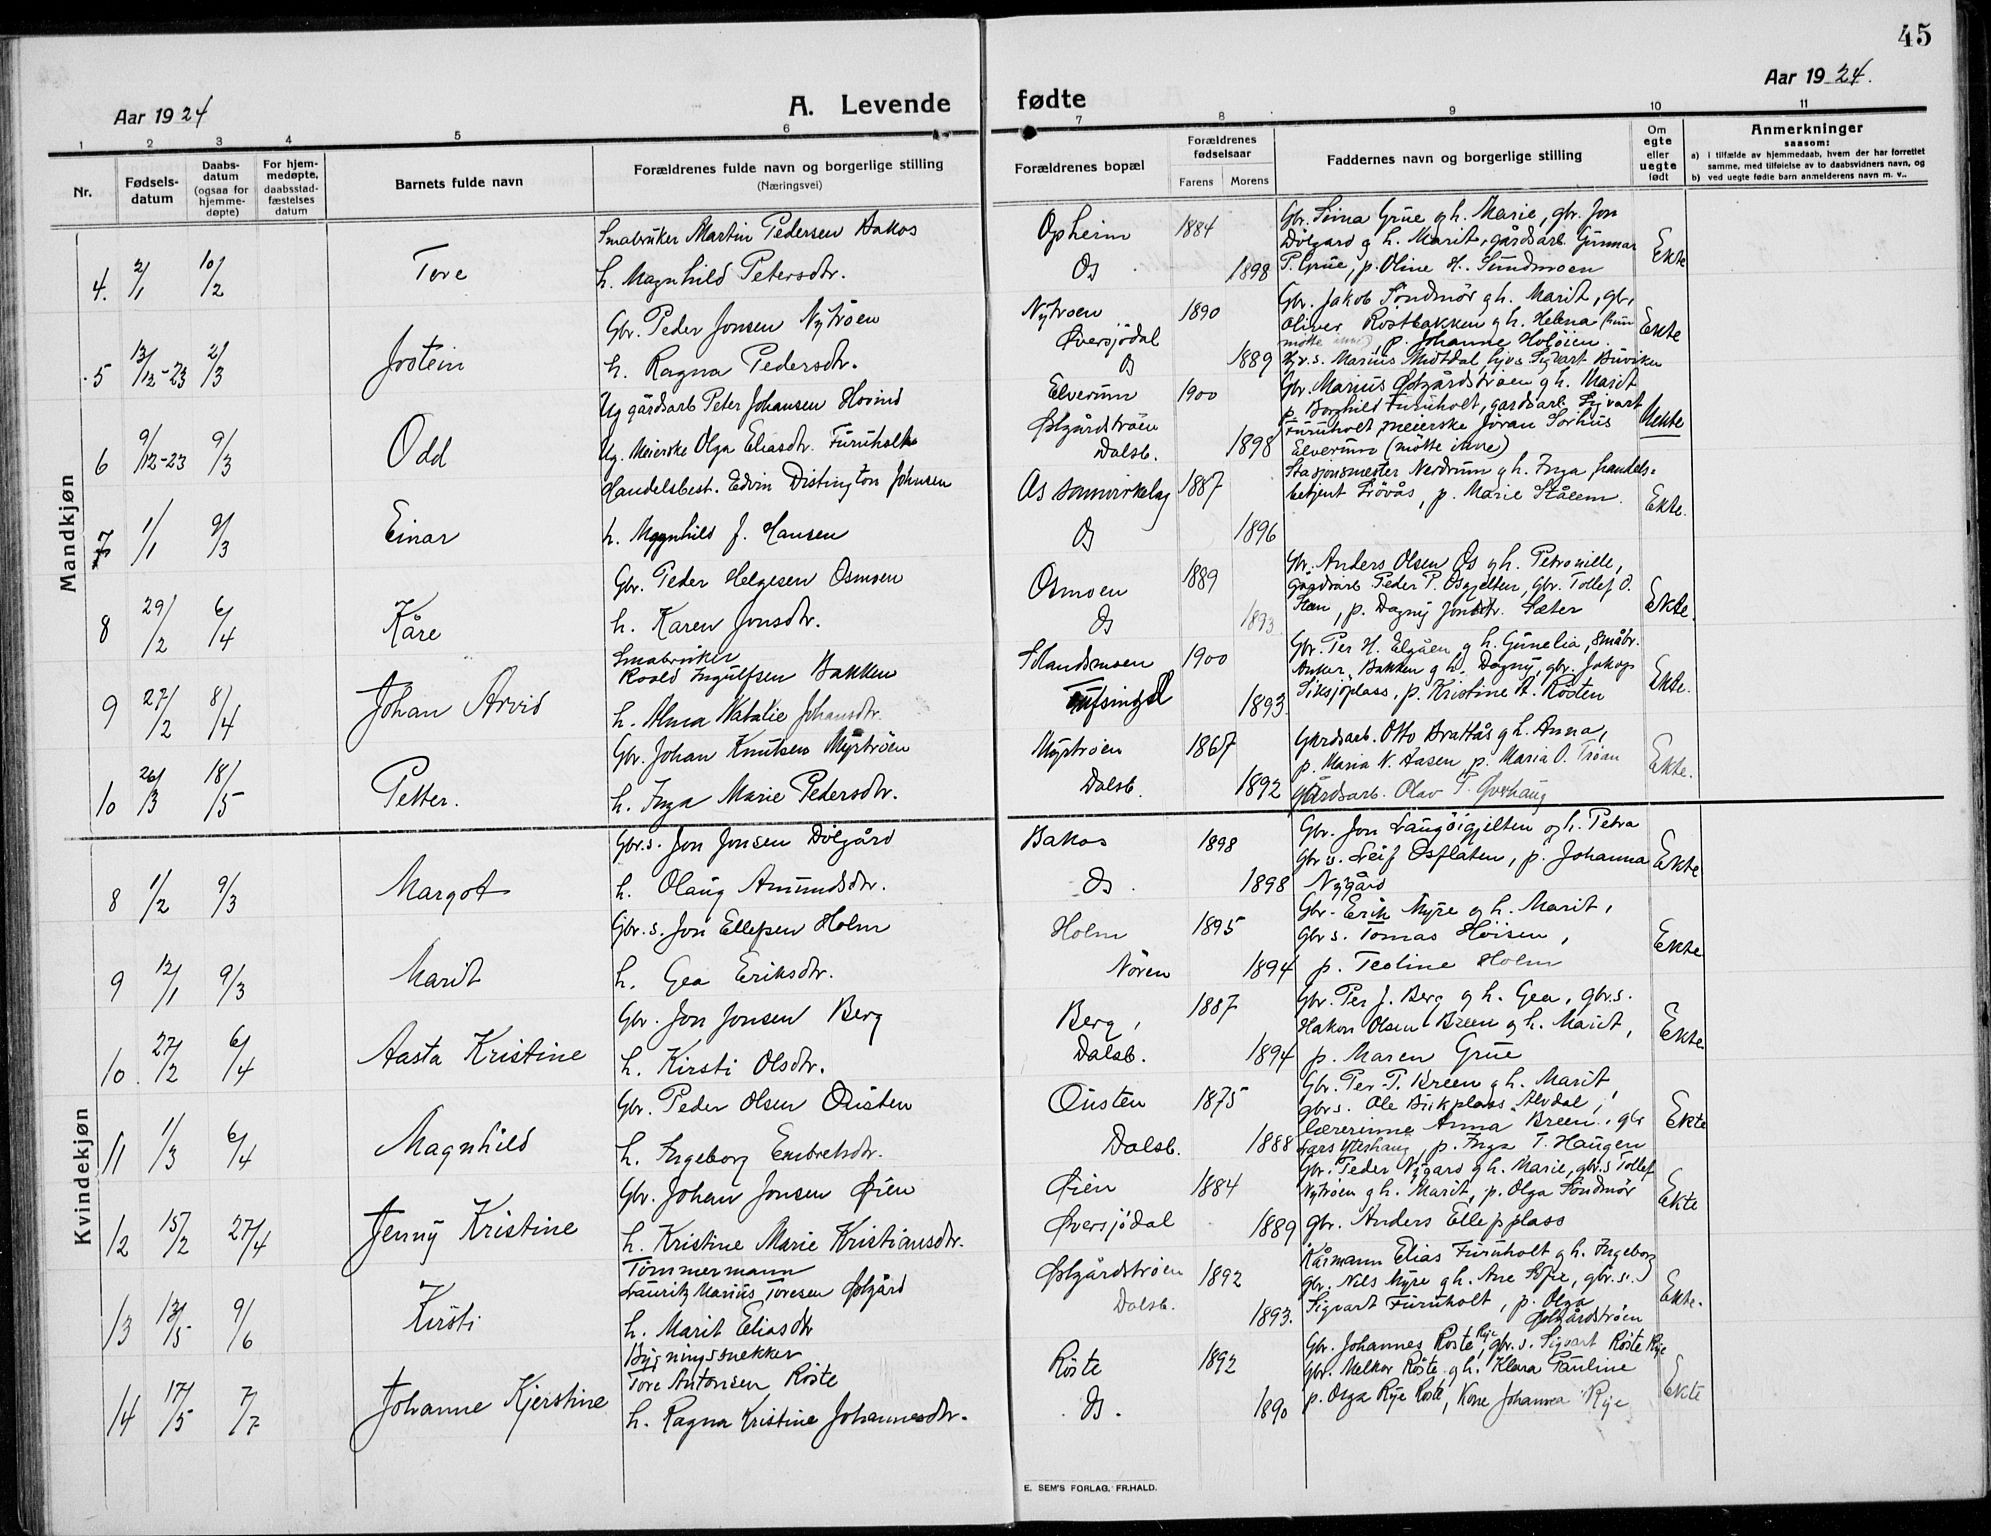 45
Aar 1924
A. Levende fødte
Aar 1924.
1 2 3 4 5 6 7 8 9 10 11
Nr.
Fødsels-datum
Daabs-datum (ogsaa for hjemme-døpte)
For hjem-medøpte, daabsstad-fæstelses datum
Barnets fulde navn
Forældrenes fulde navn og borgerlige stilling
(Næringsvei)
Forældrenes bopæl
Forældrenes fødselsaar
Farens Morens
Faddernes navn og borgerlige stilling
Om egte eller uegte født
Anmerkninger
saasom:
a) i tilfælde av hjemmedaab, hvem der har forrettet samme, med tilføielse av to daabsvidners navn, og
b) ved uegte fødte barn anmelderens navn m. v..
Mandkjøn
4. 2/1 10/2 Tore
Smabruker Martin Pedersen Bakos
h. Magnhild Petersdtr.
Opheim 1884
Os 1898
Gbr. Sima Grue g h. Marie, gbr. Jon
Dølgard g h. Marit, gårdsarb. Gunnar
P. Grue, p. Oline H. Sundmoen
Ekte
5 13/12-23 2/3 Jostein
Gbr. Peder Jonsen Nytrøen
h. Ragna Pedersdtr.
Nytroen 1890
Øversjödal
Os 1889
Gbr. Jakob Söndmör g h. Marit, gbr.
Oliver Rostbakken g h. Helena (hun
møtte inne), p. Johanne Holøien.
Gbr. s. Marius Midtdal, Sigvart Buviken
Ekte
6 9/12-23 9/3 Odd
Ug gårdsarb Peter Johansen Hovind
Ug. Meierske Olga Eliasdtr. Furuholt
Elverum 1900
Østgårdstrøen
Dalsb. 1898
Gbr. Marius Østgårdstrøen g h. Marit
p. Borghild Furuholt, gardsarb. Sigvart
Furuholt, meierske Jöran Sorhus
Elverum (møtte inne)
Uekte
7 1/1 9/3 Einar
Handelsbest. Edvin Distington Johnsen
h. Magnhild J. Hansen
Os samvirkelag 1887
Os 1896
Stasjonsmester Nerdrum g h. Inga, handels-
betjent Trövås, p. Marie Stålem.
Ekte.
8 29/2 6/4 Kåre
Gbr. Peder Helgesen Osmoen
h. Karen Jonsdtr.
Osmoen 1889
Os 1893
Gbr. Anders Olsen Os g h. Petronille,
gårdsarb Peder P. Osgjelten, Gbr. Tollef O.
Steen, p. Dagny Jonsdtr. Sæter
Ekte.
9 27/2 8/4 Johan Arvid
Smabruker
Roald Ingulfsen Bakken
h. Alma Natalie Johansdtr.
Strandsmoen 1900
Tufsingd 1893.
Gbr. Per H. Elgåen g h. Gunelia, småbr.
Anker Bakken g h. Dagny, gbr. Jakop
Siksjöplass, p. Kristine A. Rösten
Ekte.
10 26/3 18/5 Petter.
Gbr. Johan Knutsen Myrtrøen
h. Inga Marie Pedersdtr.
Myrtrøen 1867
Dalsb. 1892
Gardsarb. Otto Brattås g h. Anna,
p. Maria N. Aasen p. Maria O. Trøan
Gårdsarb. Olav T. Gverhaug
Ekte.
Kvindekjøn
8 1/2 9/3 Margot
Gbr.s. Jon Jonsen Dölgård
h. Olaug Amundsdtr.
Bakos 1898
Os. 1898
Gbr. Jon Langöigjelten g h. Petra
Gbr s. Leif Osflaten, p. Johanna
Nygård
Ekte
9 12/1 9/3 Marit
Gbr. s. Jon Ellefsen Holm
h. Gea Eriksdtr.
Holm 1895
Nören 1894
Gbr. Erik Myre g h. Marit,
Gbr s. Tomas Höisen,
p. Teoline Holm
Ekte
10. 27/2 6/4 Aasta Kristine
Gbr. Jon Jonsen Berg
h. Kirsti Olsdtr.
Berg, 1887
Dalsb. 1894
Gbr. Per J. Berg g h. Gea, gbr.s.
Hakon Olsen Breen g h. Marit,
p. Maren Grue
Ekte.
11 1/3 6/4 Magnhild
Gbr. Peder Olsen Ousten
h. Ingeborg Embretsdtr.
Ousten 1875
Dalsb. 1888
Gbr. Per T. Breen g h. Marit,
gbr s. Ole Bukplass Alvdal,
lærerinne Anna Breen, gbr
Lars Utishaug, p. Inga T. Haugen
Ekte
12 15/2 27/4 Jenny Kristine
Gbr. Johan Jonsen Øien
h. Kristine Marie Kristiansdtr.
Øien 1884
Øversjödal 1889
Gbr. Peder Nygard g h. Marie, gbr.s Tollef
Nytrøen g h. Marit, p. Olga Söndmör
gbr. Anders Ellefsplass
Ekte
13 13/5 9/6 Kirsti
Tömmermann
Lauritz Marius Toresen Østgård
h. Marit Eliasdtr
Østgårdstrøen 1892
Dalsb. 1893.
Kårmann Elias Furuholt g h. Ingeborg
gbr. Nils Myre g h. Ane Sofie, gbr.s.
Sigvart Furuholt, p. Olga
Østgårdstrøen
Ekte.
14 17/5 7/7 Johanne Kjerstine
Bygningssnekker
Tore Antonsen Röste
h. Ragna Kristine Johannesdtr.
Röste 1892
Os. 1890
Gbr. Johannes Röste Rye, gbr. s. Sigvart Röste Rye
Gbr. Melkor Röste g h. Klara Pauline
p. Olga Rye Röste, Kone Johanna Rye
Ekte
E. SEM'S FORLAG, FR.HALD.